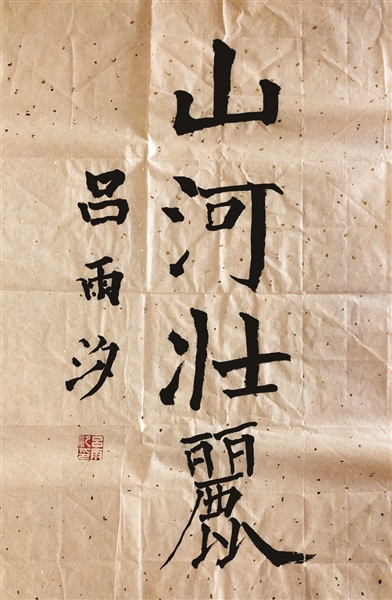 山河壯麗
吕雨汐